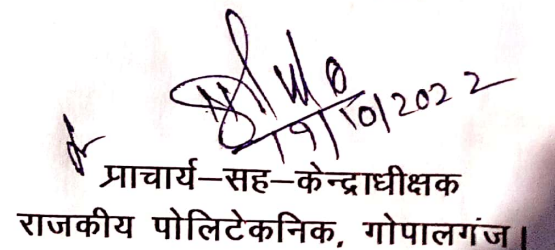 19/10/2022
प्राचार्य–सह–केन्द्राधीक्षक
राजकीय पोलिटेकनिक, गोपालगंज।